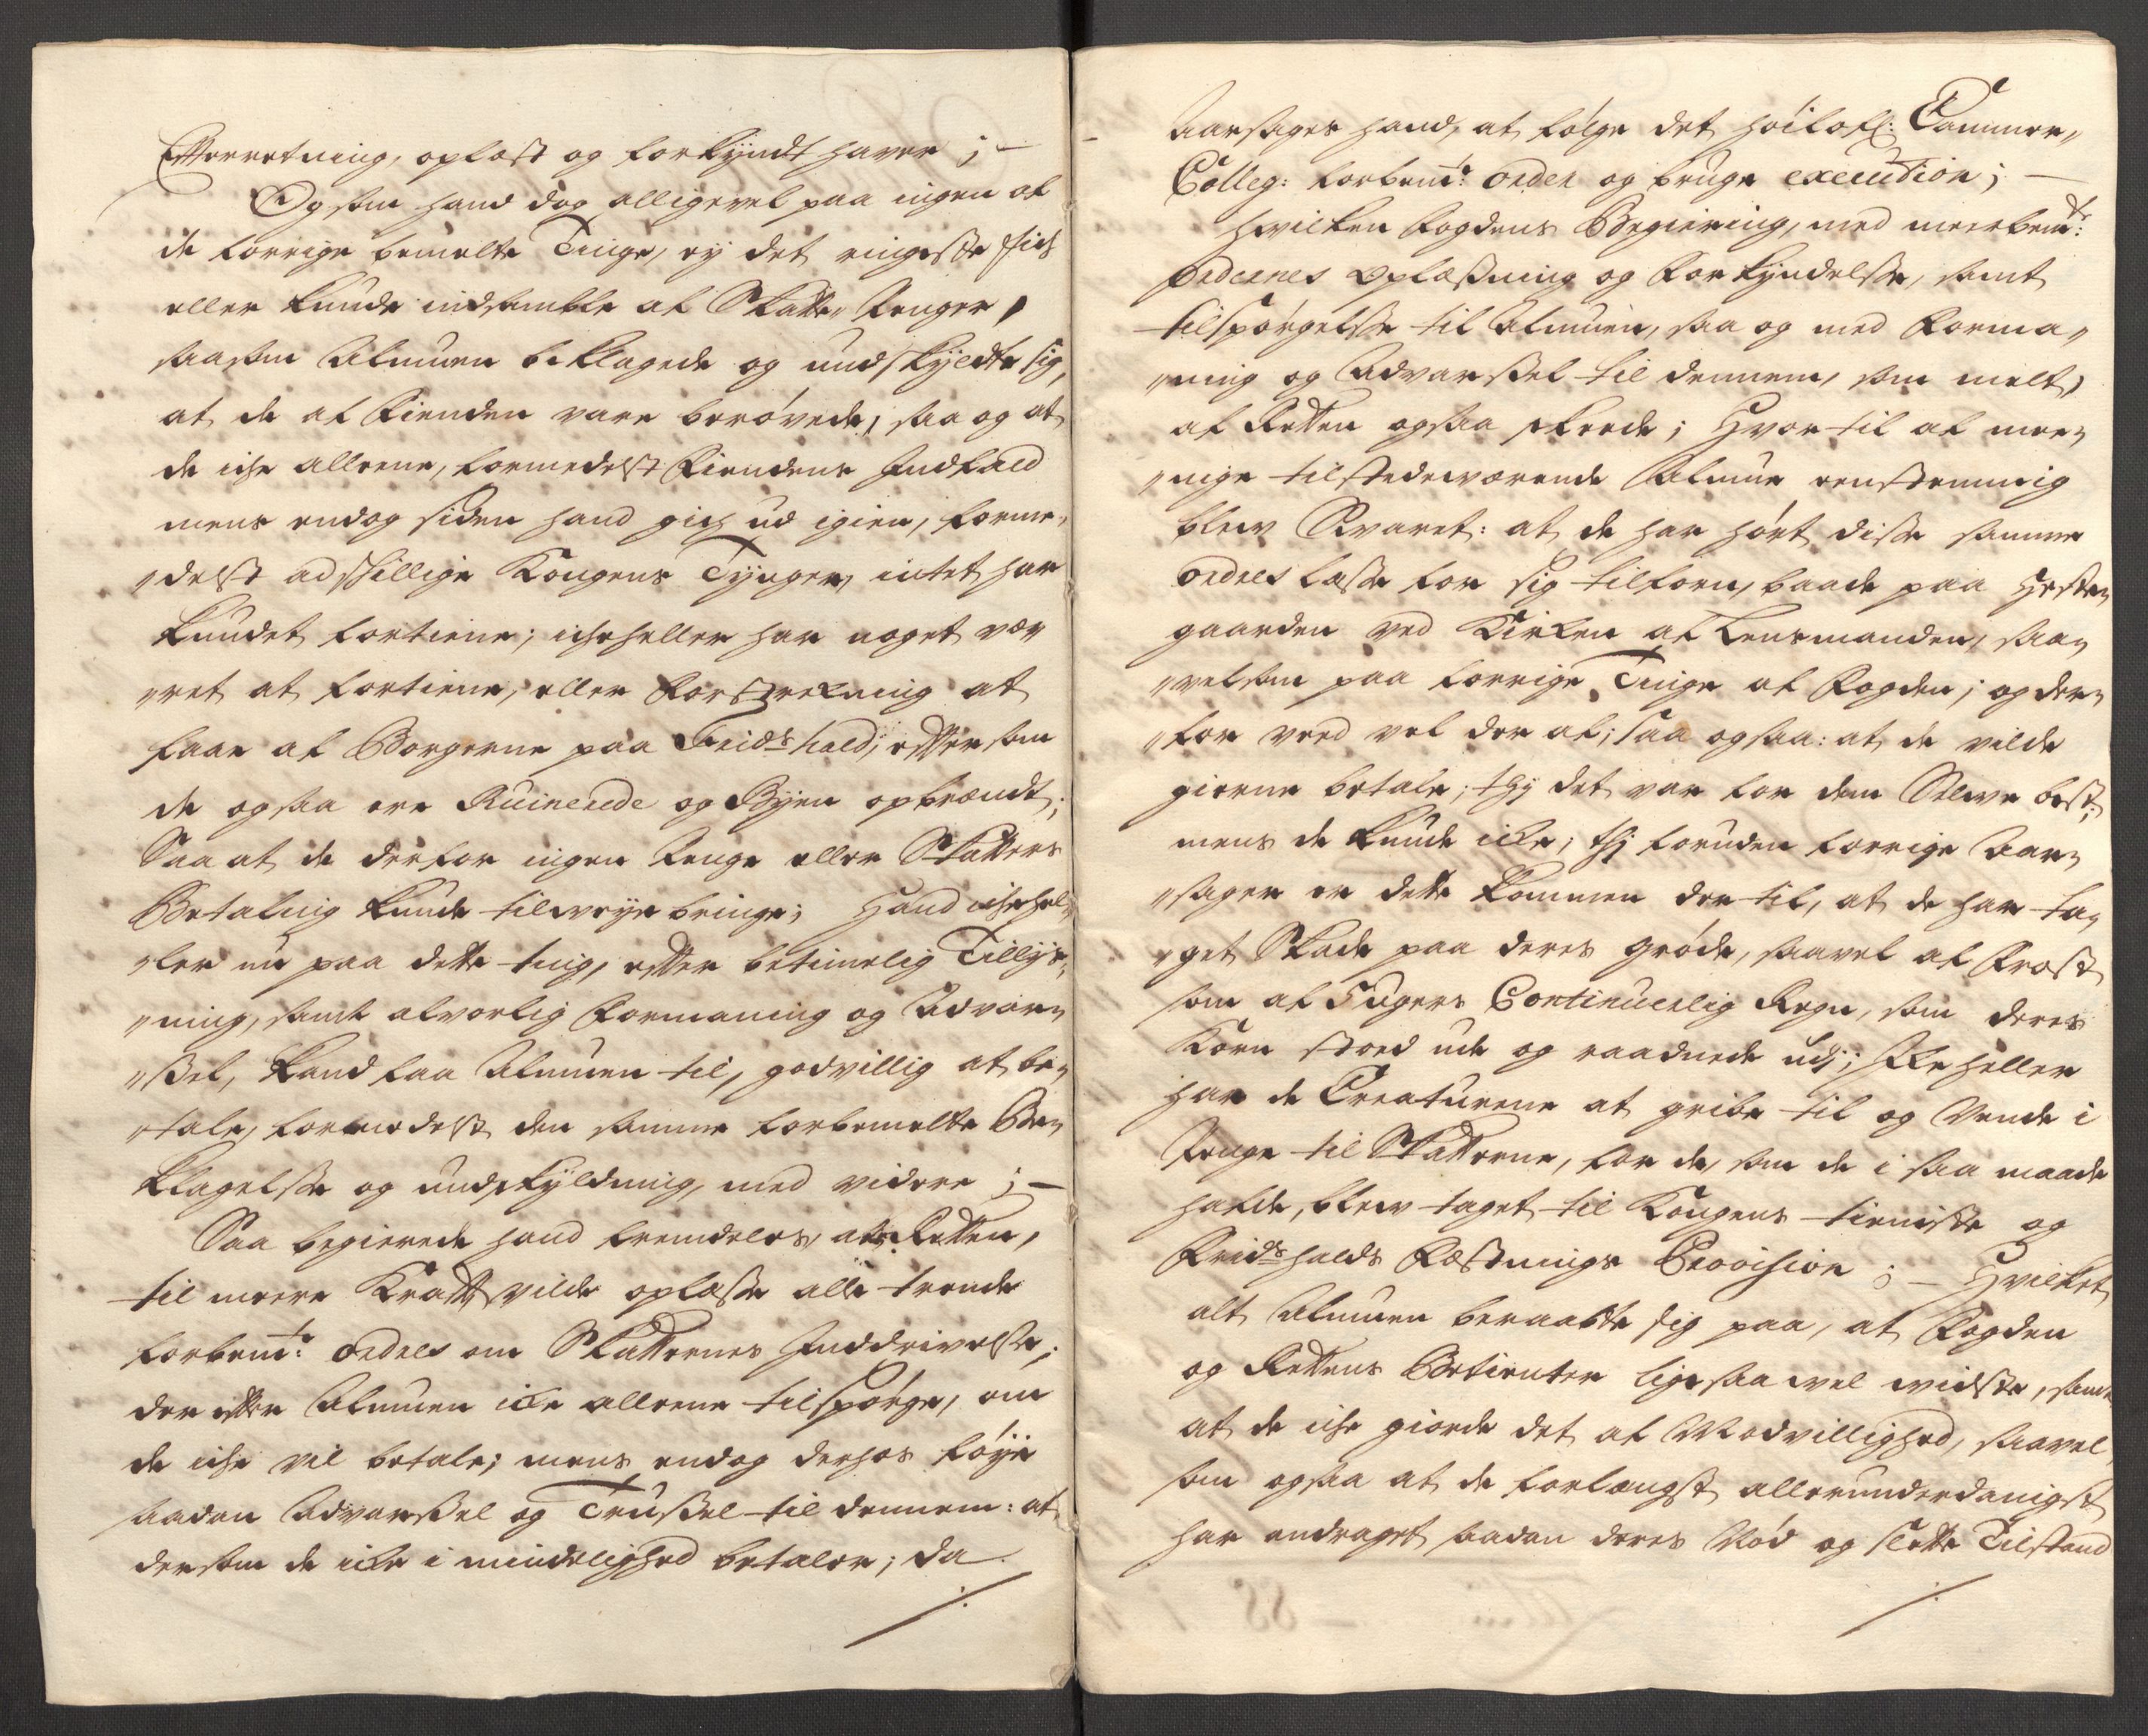 Efterretning, oplæst og forkyndt haver ;-
Og som hand dog alligevel paa ingen af
de forrige bemelte Tinge, ey det ringeste fich
eller kunde indsamble af Skatte-Penger,
saasom Almuen beklagede og undskyldte sig,
at de af Fienden vare berøvede, saa og at
de iche alleene, formedelst Fiendens Indfald
mens endog siden hand gich ud igien, forme-
"delst adskillige Kongens Tynger, intet har
kundet fortiene; iche heller har noget vær
"ret at fortiene, eller Forstrekning at
faae af Borgerne paa Frids-hald, eftersom
de ogsaa ere Ruinerede og Byen opbrændt;
Saa at de derfor ingen Penge eller Skatters
Betaling kunde tilweye bringe; Hand iche hel-
"ler nu paa dette ting, efter betimelig Tillys-
"ning, samt alvorlig Formaning og Advar-
"Sel, kand faa Almuen til, godvillig at be-
"tale, formedelst den samme forbemelte Be-
klagelse og undskyldning, med videre ;-
Saa begierede hand fremdeles, at Retten,
til meere Kraft vilde oplæsse alle trende
forbemte: ordres om Skatternes Inddrivelse;
der efter Almuen icke alleene tilspørge, om
de iche vil betale; mens endog derhos føye
saadan Advarsel og Trussel til dennem: at
dersom de icke i mindelighed betaler; da
Aarsages hand, at følge det høilofl: Cammer-
Colleg: forbemte: order og bruge execution; -
Hvilken Fogdens Begiering, med meerbemte:
ordernes Oplæsning og Forkyndelse, samt
tilspørgelse til Almuen, saa og med Forma-
"ning og Advarsel til dennem, som melt,
af Retten ogsaa skeede; Hvortil af mee-
"nige tilstedeværende Almue eenstemmig
blew Svaret: at de har hørt disse samme
ordres læsse for sig tilforn, baade paa Præste-
gaarden ved Kirken af Lensmanden, saa-
"velsom paa forrige Tinge af Fogden; og der-
"for veed vel der af; saa ogsaa: at de vilde
gierne betale; thj det var for dem Selwe best;
mens de kunde icke; thj foruden forrige Aar-
"sager er dette kommen der til, at de har ta-
"get Skade paa deres grøde, saavel af Frost
som af Ugers Continuerlig Regn, som deres
Korn stoed ude og raadnede udj; Icke heller
har de Creaturene at gribe til og Vende i
Penge til Skatterne, for de, som de i saa maade
hafde, blew taget til Kongens tieniste og
Fridshalds Festnings Provision ;- Hvilket
alt Almuen beraabte sig paa, at Fogden
og Rettens Betienter ligesaa wel widste, samt
at de iche giorde det af Modvillighed, saavel
som ogsaa at de forlængst allerunderdanigst
har andraget saadan deres Nød og slette Tilstand